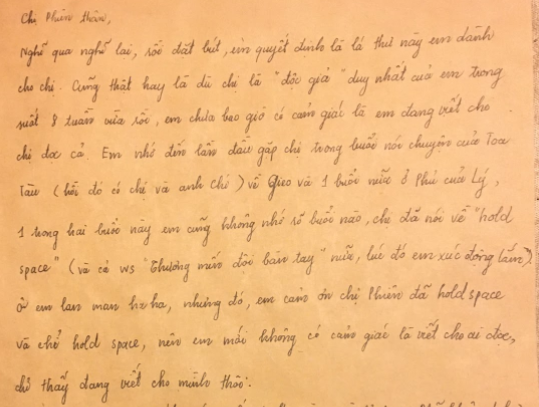 Chị Phiên thân,
Nghĩ qua nghĩ lại, rồi đặt bút, em quyết định là lá thư này em dành
cho chị. Cũng thật hay là dù chị là "độc giả" duy nhất của em trong
suốt 8 tuần vừa rồi, em chưa bao giờ có cảm giác là em đang viết cho
chị đọc cả. Em nhớ đến lần đầu gặp chị trong buổi nói chuyện của Toa
Tàu (hồi đó có chị và anh Chí) về Gieo và 1 buổi nữa ở Phú của Lý,
1 trong hai buổi này em cũng không nhớ rõ buổi nào, chị đã nói về "hold
space" (và cả ws "Thương mến đôi bàn tay" nữa, lúc đó em xúc động lắm).
Ờ em lan man hxha, nhưng đó, em cảm ơn chị Phiên đã hold space
và chỉ hold space, nên em mới không có cảm giác là viết cho ai đọc,
chỉ thấy đang viết cho mình thôi.